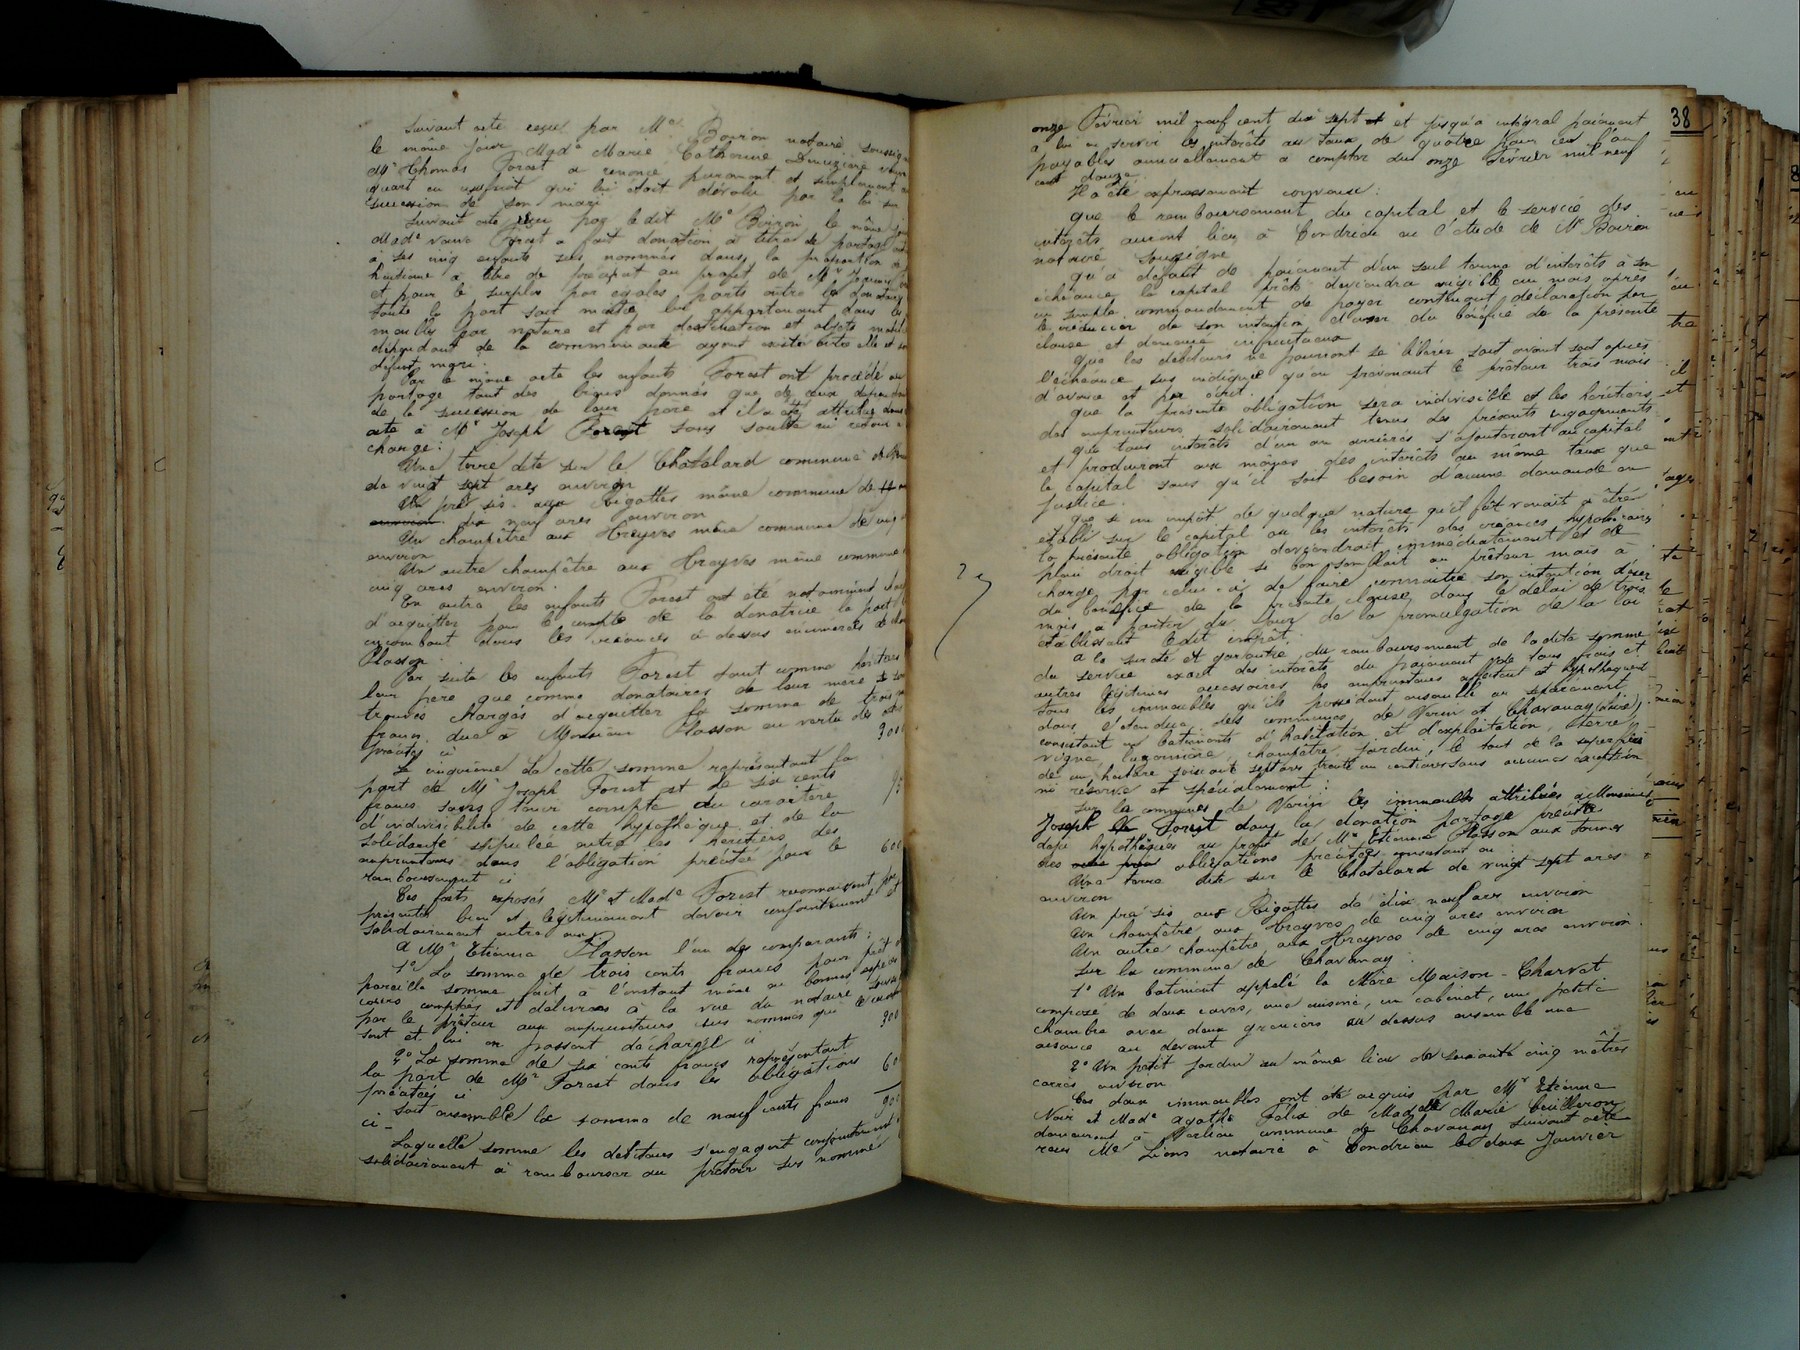 Suivant acte reçu par Me Boiron notaire soussigné
le même jour Made Marie Catherine
Mr Thomas Forest a renoncé purement et simplement au
quart en usufruit qui lui était dévolu par la loi sur
succession de son mari
Suivant acte reçu par ledit Me Boiron le même jour
Made veuve Forest a fait donation à titre de partage
à ses cinq enfants sus nommés dans la proportion
huitième à titre de préciput au profit de Mr
et pour le surplus par egales parts entre les donataires
toute la part soit moitié lui appartenant dans les
meubles par nature et par destination et objets
dépendant de la communauté ayant existé entre elle et son
défunt mari.
Par le même acte les enfants Forest ont procédé au
partage tant des biens donnés que de ceux
de la succession de leur père et il a été attribué dans
acte à Mr Joseph Forest sans soulte ni retour
change:
Une terre dite sur le Chatelard commune de
de vingt sept ares environ
Un pré sis aux Rigattes même commune de
environ dix neuf ares environ
Un champêtre aux Hreyves même commune de cinq
environ
Un autre champêtre aux Hreyves même commune
cinq ares environ.
En outre les enfants Forest ont été
d'acquitter pour le compte de la donatrice la part
incombant dans les créances ci dessus énumérées de
Plasson.
Par suite les enfants Forest tant comme héritiers
leur père que comme donataires de leur mère se
trouvés chargés d'acquitter la somme de trois
francs due à Monsieur Plasson en vertu des
précités ci 300
Le cinquième de cette somme représentant la
part de Mr Joseph Forest est de six cents
francs sans tenir compte du caractère
d'indivisibilité de cette hypothèque et de la
solidarité stipulée entre les héritiers des
emprunteurs dans l'obligation précitée pour le
remboursement ci 600
Ces faits exposés Mr et Made Forest reconnaissent par
présentes bien et légitimement devoir conjointement et
solidairement entre eux
A Mr Etienne Plasson l'un des comparants:
1° La somme de trois cents francs pour prêt de
pareille somme fait à l'instant même en bonnes espèces
cours comptées et délivrées à la vue du notaire
par le prêteur aux emprunteurs sus nommés qui le
sont et lui en passent décharge ci 300
2° La somme de six cents francs représentant
la part de Mr Forest dans les obligations
précitées ci 60
Soit ensemble la somme de neuf cents francs
ci - 900
Laquelle somme les débiteurs s'engagent conjointement
solidairement à rembourser au prêteur sus nommé
38
onze Février mil neuf cent dix sept et jusqu'à intégral paiement
à lui en servir les intérêts au taux de quatre pour cent l'an
payables annuellement à compter du onze Février mil neuf
cent douze.
Il a été expressément convenu:
que le remboursement du capital et le service des
intérêts auront lieu à Condrieu en l'étude de Me Boiron
notaire soussigné
qu'à défaut de paiement d'un seul terme d'intérêts à son
échéance, le capital prêté deviendra exigible un mois après
un simple commandement de payer contenant déclaration par
le créancier de son intention d'user du bénéfice de la présente
clause et demeuré infructueux
Que les débiteurs ne pourront se libérer soit avant soit après
l'échéance sus indiquée qu'en prévenant le prêteur trois mois
d'avance et par écrit.
que la présente obligation sera indivisible et les héritiers
des emprunteurs solidairement tenus des présents engagements.
que tous intérêts d'un an arriérés s'ajouteront au capital
et produiront eux mêmes des intérêts au même taux que
le capital sans qu'il soit besoin d'aucune demande en
justice.
que si un impôt de quelque nature qu'il fût venait à être
établi sur le capital ou les intérêts des créances hypothécaires
la présente obligation deviendrait immédiatement et de
plein droit exigible si bon semblait au prêteur mais à
charge par celui-ci de faire connaitre son intention d'user
du bénéfice de la présente clause, dans le délai de trois
mois à partir du jour de la promulgation de la loi
établissant ledit impôt.
A la sûreté et garantie du remboursement de ladite somme
du service exact des intérêts du paiement de tous frais et
autres légitimes accessoires les emprunteurs affectent et hypothèquent
tous les immeubles qu'ils possèdent ensemble ou séparément
dans l'étendue des communes de Verin et Chavanay (Loire)
consistant en batiments d'habitation et d'exploitation, terre,
vigne, champêtre, jardin, le tout de la superficie
de un hectare soixant sept ares trente un centiares sans aucunes exception
ni réserve et spécialement:
Sur la commune de Verin les immeubles attribués à Monsieur
Joseph Forest dans la donation partage précitée
déjà hypothéqués au profit de Mr Etienne Plasson aux termes
des obligations précitées consistant en
Une terre dite sur le Chatelard de vingt sept ares
environ
Un pré sis aux Rigattes de dix neuf ares environ
Un champêtre aux Hreyves de cinq ares environ
Un autre champêtre aux Hreyves de cinq ares environ.
Sur la commune de Chavanay.
1° Un batiment appelé la Mère Maison-Charvet
composé de deux caves, une cuisine, un cabinet, une petite
chambre avec deux greniers au dessus ensemble une
aisance au devant
2° Un petit jardin au même lieu de soixante cinq mètres
carrés environ
Ces deux immeubles ont été acquis par Mr Etienne
Noir et Made Agathe Félix de Madelle Marie Cuilleron
demeurant à Verlieu commune de Chavanay suivant acte
reçu Me Lions notaire à Condrieu le deux Janvier